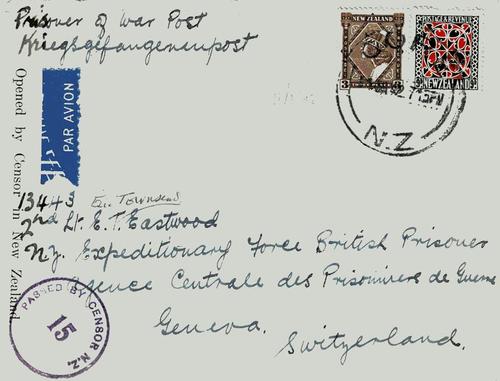 Prisoner of War Post
Kriegsgefangenenpost
NEW ZEALAND
3
POSTAGE & REVENUE
NEW ZEALAND
N.Z
PAR AVION
Opened by Censor in New Zealand.
13443 Eric Townsend
2nd Lt. E.T. Eastwood
N.Z. Expeditionary Force British Prisoner
gence Centrale des Prisonniers de Guerre
Geneva.
Switzerland.
PASSED BY CENSOR N.Z.
15